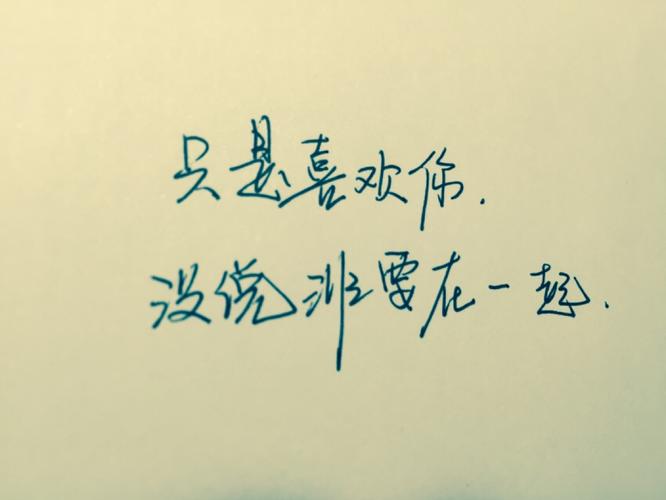 只是喜欢你.
没说非要在一起.